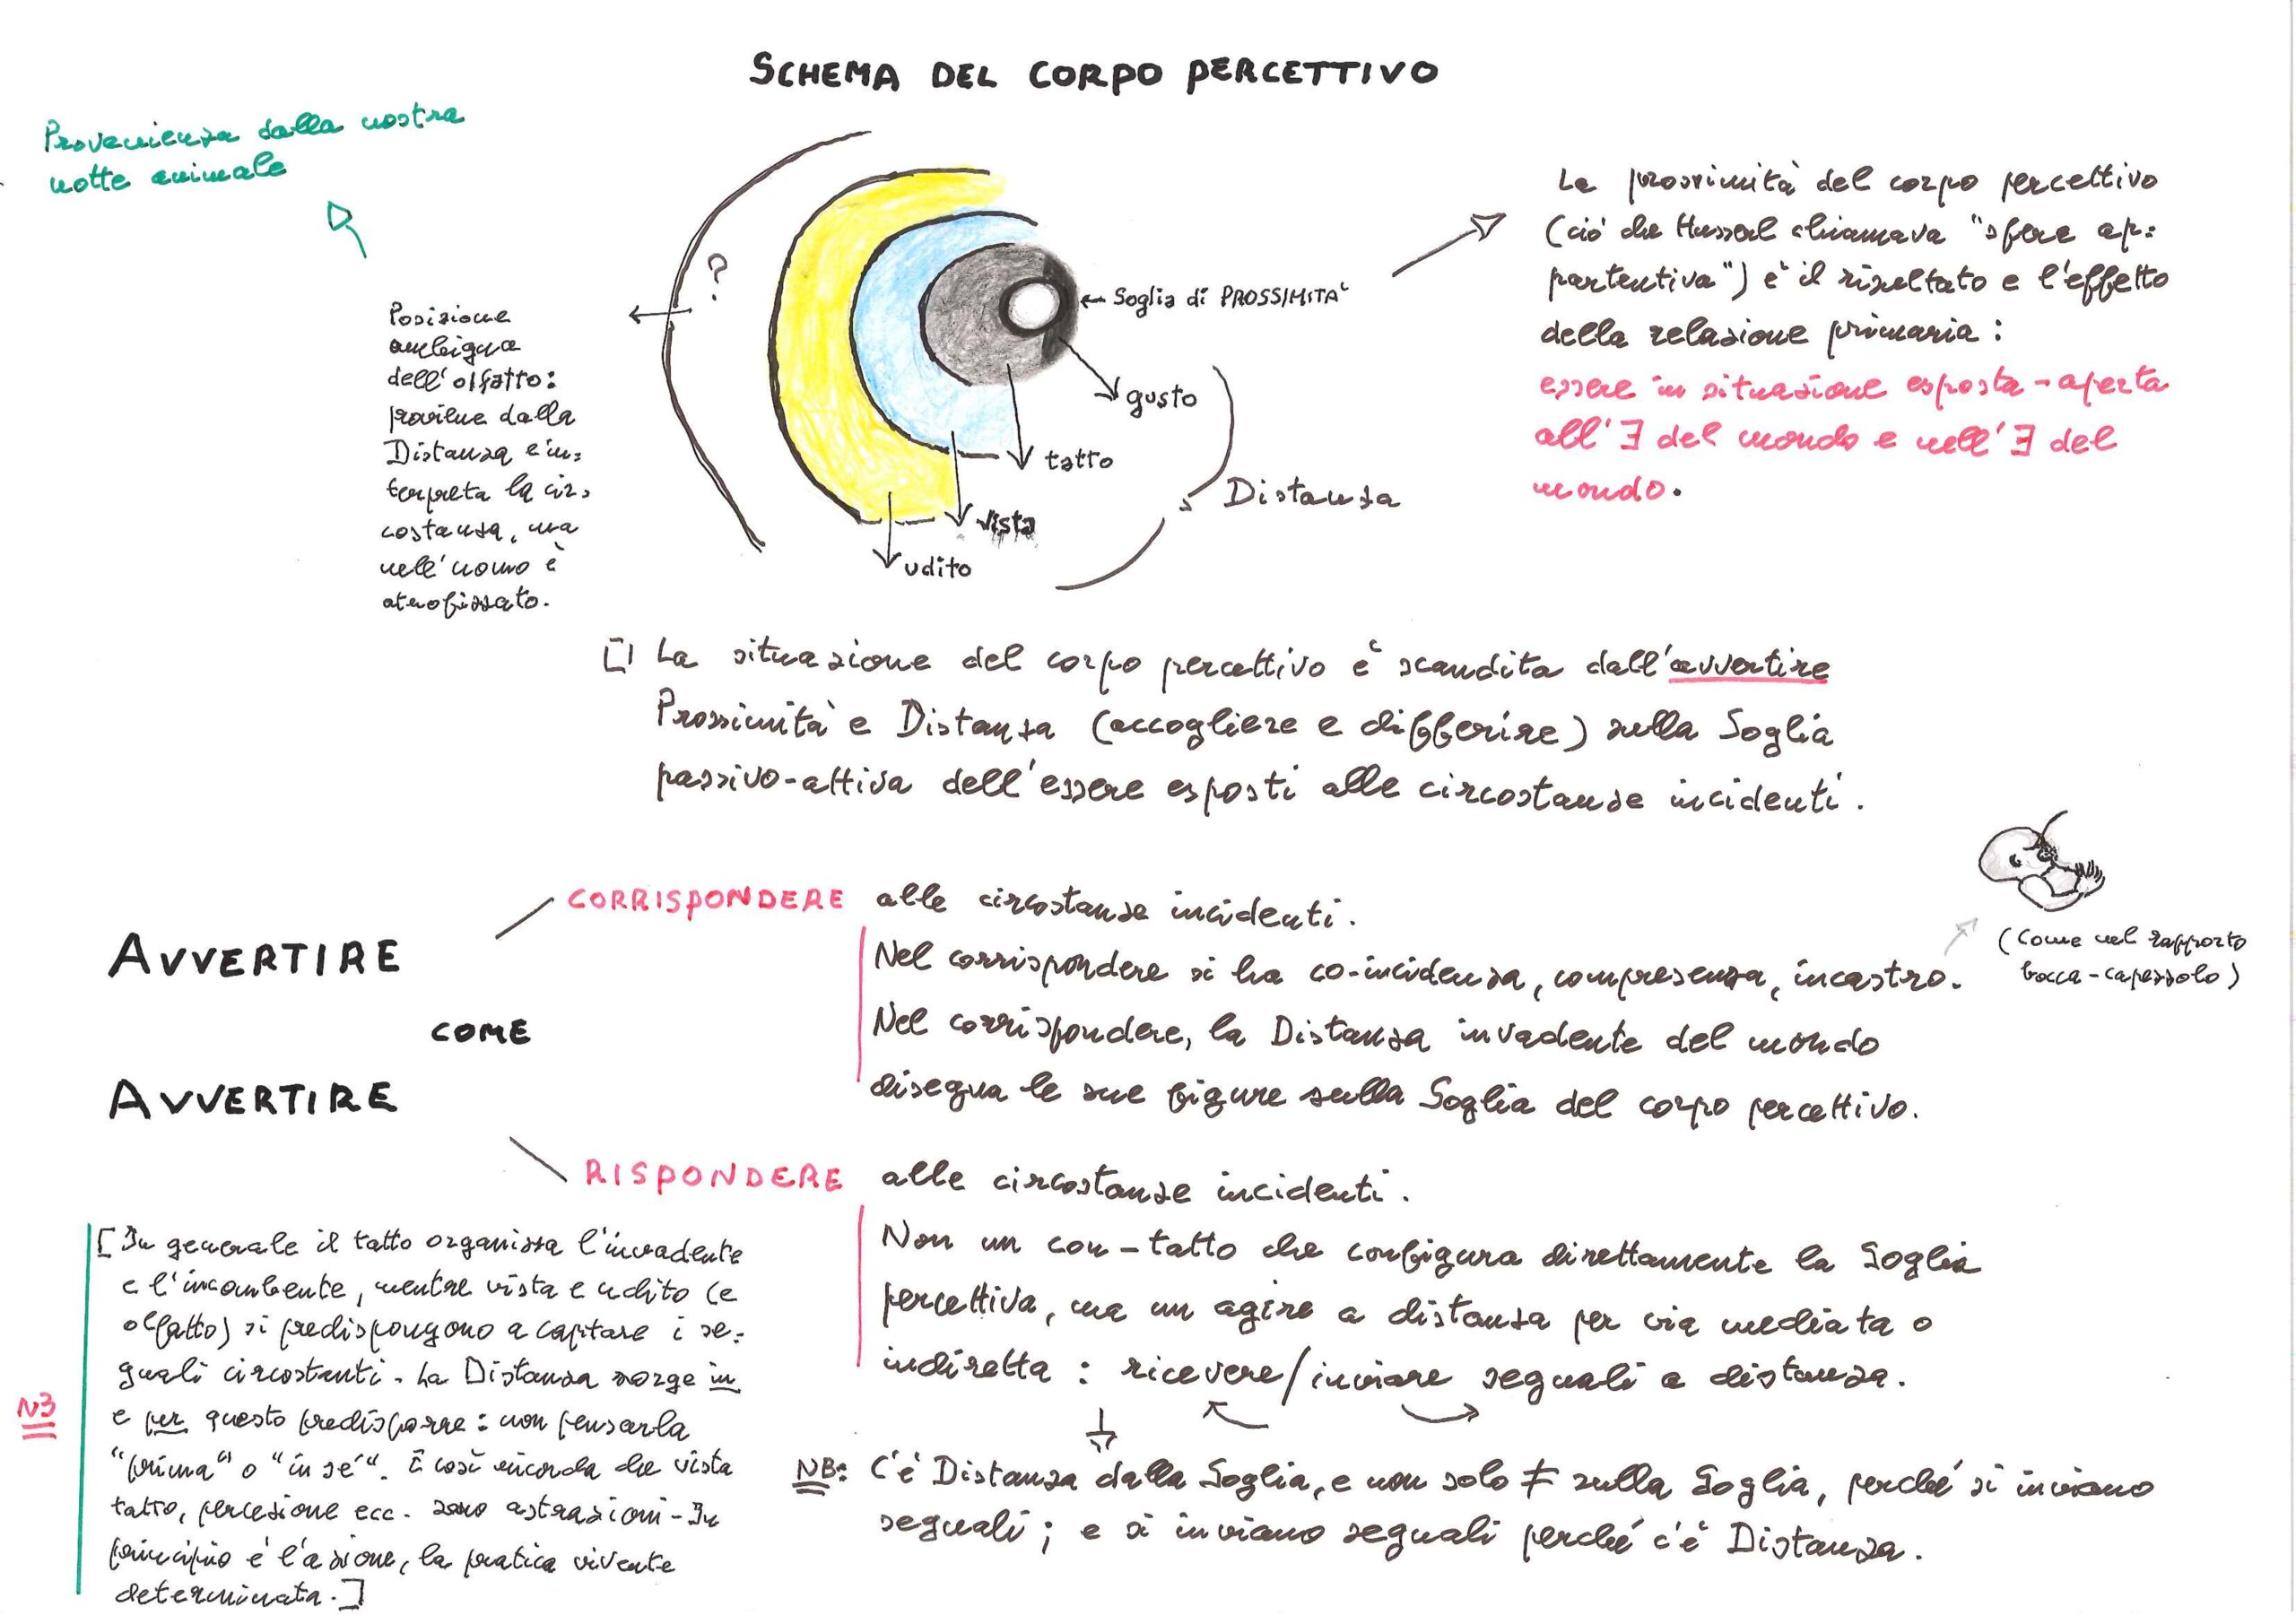 SCHEMA DEL CORPO PERCETTIVO
Provenienza dalla nostra
notte animale
Posizione
ambigua
dell'olfatto:
proviene dalla
Distanza e in=
terpreta la cir=
costanza, ma
nell'uomo è
atrofizzato.
?
← Soglia di PROSSIMITA'
gusto
tatto
vista
udito
Distanza
La prossimità del corpo percettivo
(ciò che Husserl chiamava "sfera ap=
partentiva") è il risultato e l'effetto
della relazione primaria:
essere in situazione esposta-aperta
all'∃ del mondo e nell'∃ del
mondo.
[] La situazione del corpo percettivo è scandita dall'avvertire
Prossimità e Distanza (accogliere e differire) sulla Soglia
passivo-attiva dell'essere esposti alle circostanze incidenti.
AVVERTIRE
COME
AVVERTIRE
CORRISPONDERE alle circostanze incidenti.
Nel corrispondere si ha co-incidenza, compresenza, incastro.
Nel corrispondere, la Distanza invadente del mondo
disegna le sue figure sulla Soglia del corpo percettivo.
(Come nel rapporto
bocca-capezzolo)
RISPONDERE alle circostanze incidenti.
Non un con-tatto che configura direttamente la Soglia
percettiva, ma un agire a distanza per via mediata o
indiretta: ricevere/inviare segnali a distanza.
NB: C'è Distanza dalla Soglia, e non solo ≠ sulla Soglia, perché si inviano
segnali; e si inviano segnali perché c'è Distanza.
NB
[In generale il tatto organizza l'invadente
e l'incombente, mentre vista e udito (e
olfatto) si predispongono a captare i se=
gnali circostanti. La Distanza sorge in
e per questo predisporre: non pensarla
"prima" o "in sé". E così ricorda che vista
tatto, percezione ecc. sono astrazioni - In
principio è l'azione, la pratica vivente
determinata.]